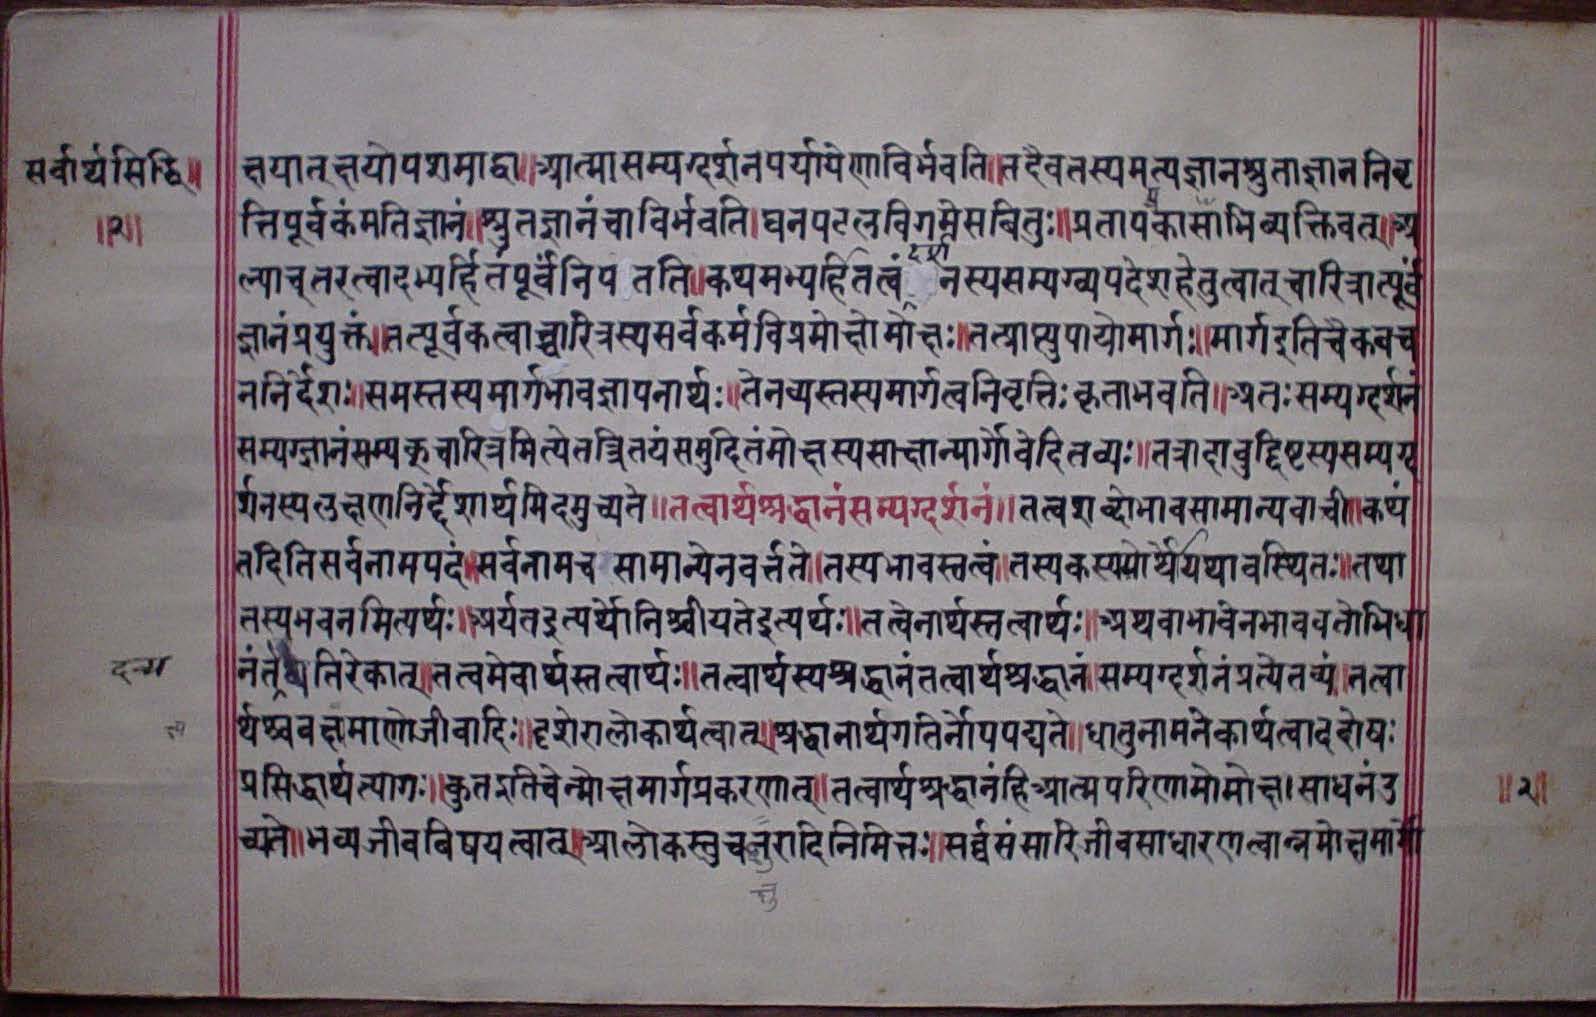 सर्वार्थसिद्धि॥
॥२॥
क्षयात् क्षयोपशमाद्वा॥आत्मासम्यग्दर्शनपर्यायेणाविर्भवति॥तदैवतस्यमत्यज्ञानश्रुताज्ञाननिवृ
त्तिपूर्वकंमतिज्ञानं॥श्रुतज्ञानंचाविर्भवति॥घनपटलविगमेसवितुः॥प्रतापप्रकासाभिव्यक्तिवत्॥अ
ल्पाच्तरत्वादभ्यर्हितंपूर्वंनिपतति॥कथमभ्यर्हितत्वंदर्शनस्यसम्यग्व्यपदेशहेतुत्वात्चारित्रात्पूर्वं
ज्ञानंप्रयुक्तं॥तत्पूर्वकत्वाच्चारित्रस्यसर्वकर्मविप्रमोक्षोमोक्षः॥तत्प्राप्त्युपायोमार्गः॥मार्गइतिचैकवच
ननिर्देशः॥समस्तस्यमार्गभावज्ञापनार्थः॥तेनव्यस्तस्यमार्गत्वनिवृत्तिःकृताभवति॥अतःसम्यग्दर्शनं
सम्यग्ज्ञानंसम्यक्चारित्रमित्येतत्त्रितयंसमुदितंमोक्षस्यसाक्षान्मार्गोवेदितव्यः॥तत्रादावुद्दिष्टस्यसम्यग्द
र्शनस्यलक्षणनिर्द्देशार्थमिदमुच्यते॥तत्वार्थश्रद्धानंसम्यग्दर्शनं॥तत्वशब्दोभावसामान्यवाची॥कथं
तदितिसर्वनामपदं॥सर्वनामच सामान्येनवर्त्तते॥तस्यभावस्तत्वं॥तस्यकस्ययोर्थोयथावस्थितः॥तथा
तस्यभवनमित्यर्थः॥अर्यतइत्यर्थोनिश्चीयतेइत्यर्थः॥तत्वेनार्थस्तत्वार्थः॥अथवाभावेनभाववतोभिधा
नंतदव्यतिरेकात्॥तत्वमेवार्थस्तत्वार्थः॥तत्वार्थस्यश्रद्धानंतत्वार्थश्रद्धानं॥सम्यग्दर्शनंप्रत्येतव्यं॥तत्वा
र्थश्चवक्षमाणोजीवादिः॥दृशेरालोकार्थत्वात्॥श्रद्धानार्थगतिर्नोपपद्यते॥धातुनामनेकार्थत्वाददोषः
प्रसिद्धार्थत्यागः॥कुतइतिचेन्मोक्षमार्गप्रकरणात्॥तत्वार्थश्रद्धानंहिआत्मपरिणामोमोक्ष।साधनंउ
च्यते॥भव्यजीवविषयत्वात्॥आलोकस्तुचक्षुरादिनिमित्तः॥सर्व्वसंसारिजीवसाधारणत्वान्नमोक्षमार्गो
॥२॥
क्षु